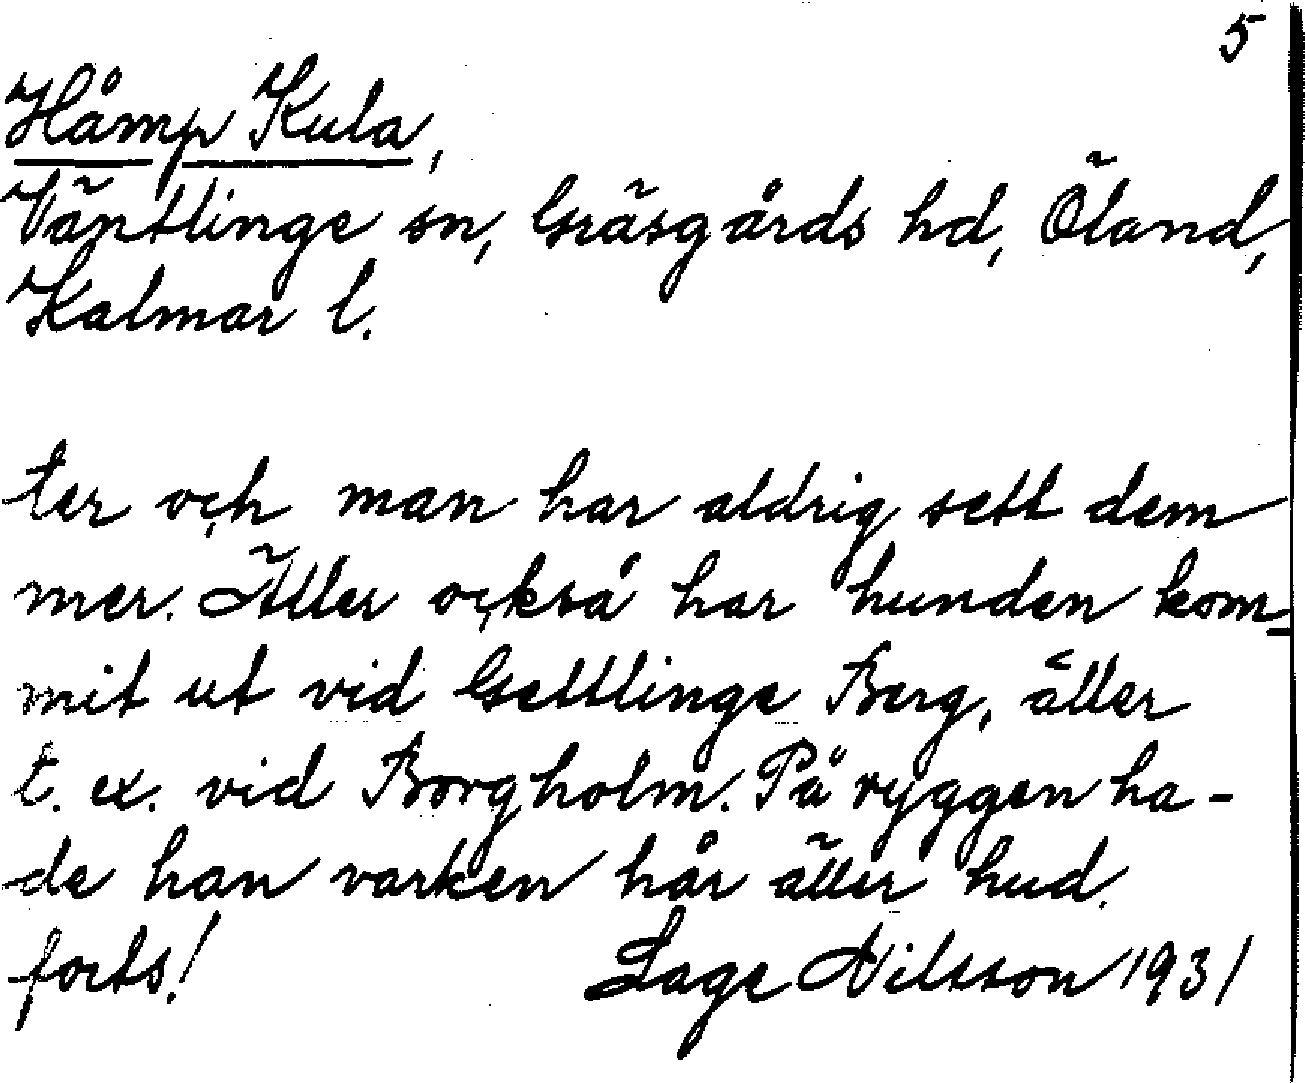 5
Håmp Kula,
Väntlinge sn, Gräsgårds hd, Öland,
Kalmar l.
ter och man har aldrig sett dem
mer. Äller också har hunden kom-
mit ut vid Gettlinge Berg, äller
t. ex. vid Borgholm. På ryggen ha-
de han varken hår äller hud.
forts! Lage Nilsson 1931